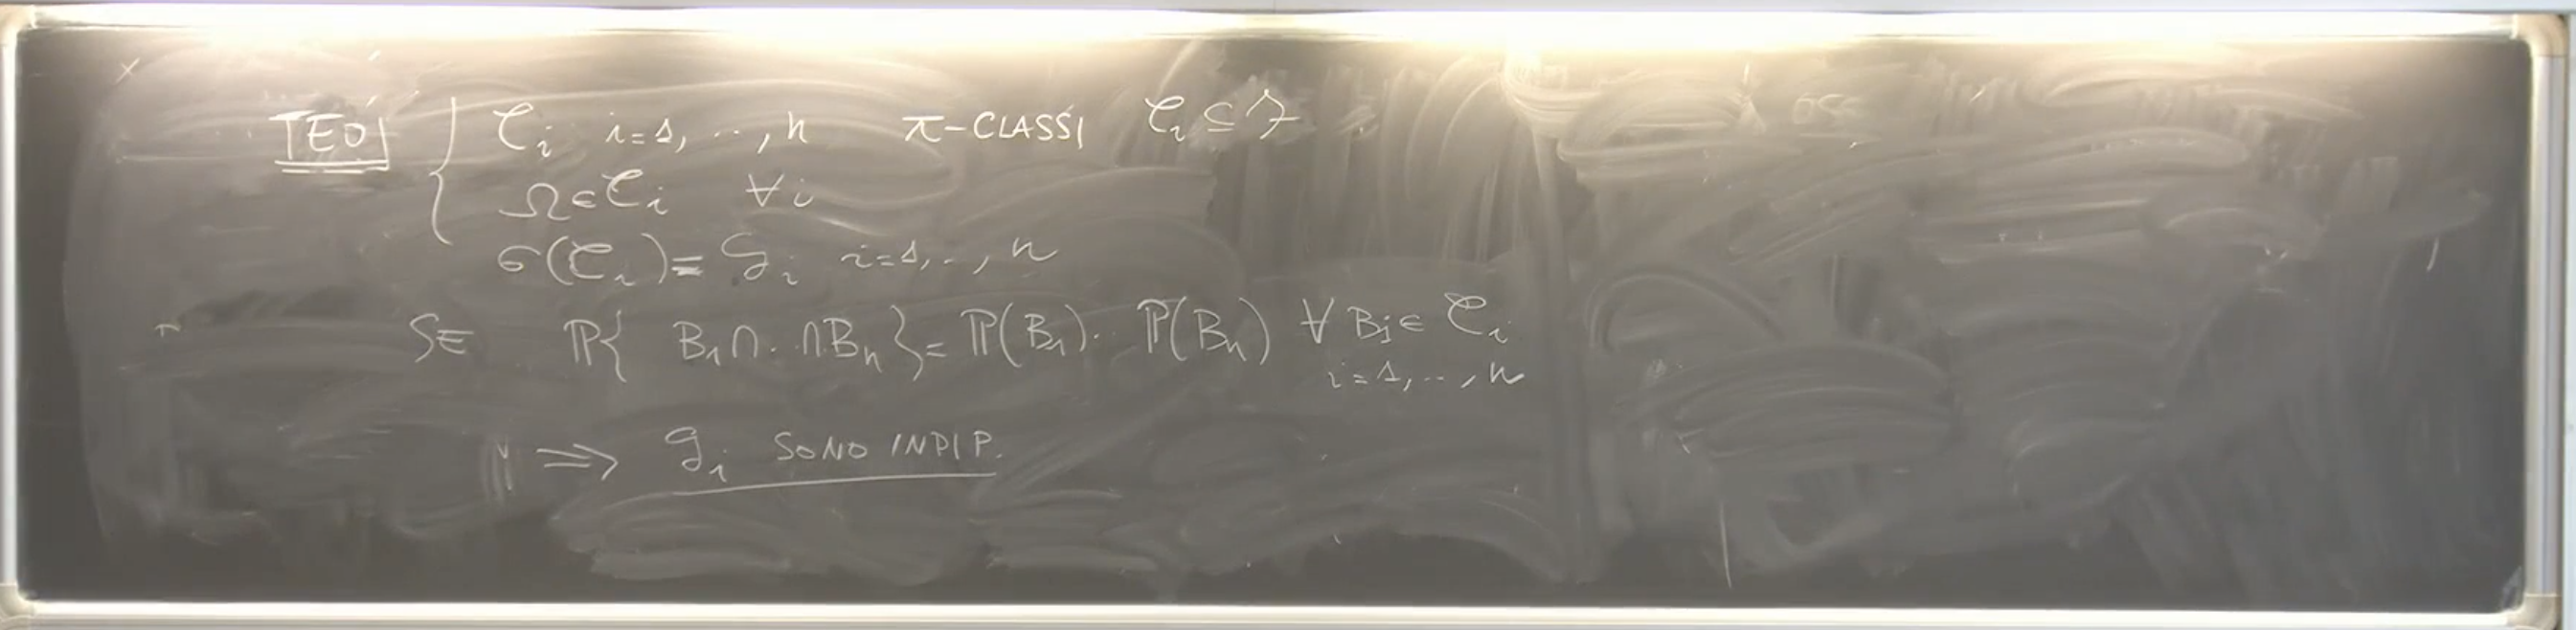 TEO { 𝒞ᵢ i=1, .. , n π-CLASSI 𝒞ᵢ ⊆ ℱ
Ω ∈ 𝒞ᵢ ∀i
σ(𝒞ᵢ) = 𝒢ᵢ i=1, .. , n
SE ℙ{ B₁∩..∩Bₙ } = ℙ(B₁)·· ℙ(Bₙ) ∀ Bⱼ ∈ 𝒞ᵢ
i=1, .. , n
⇒ 𝒢ᵢ SONO INDIP.